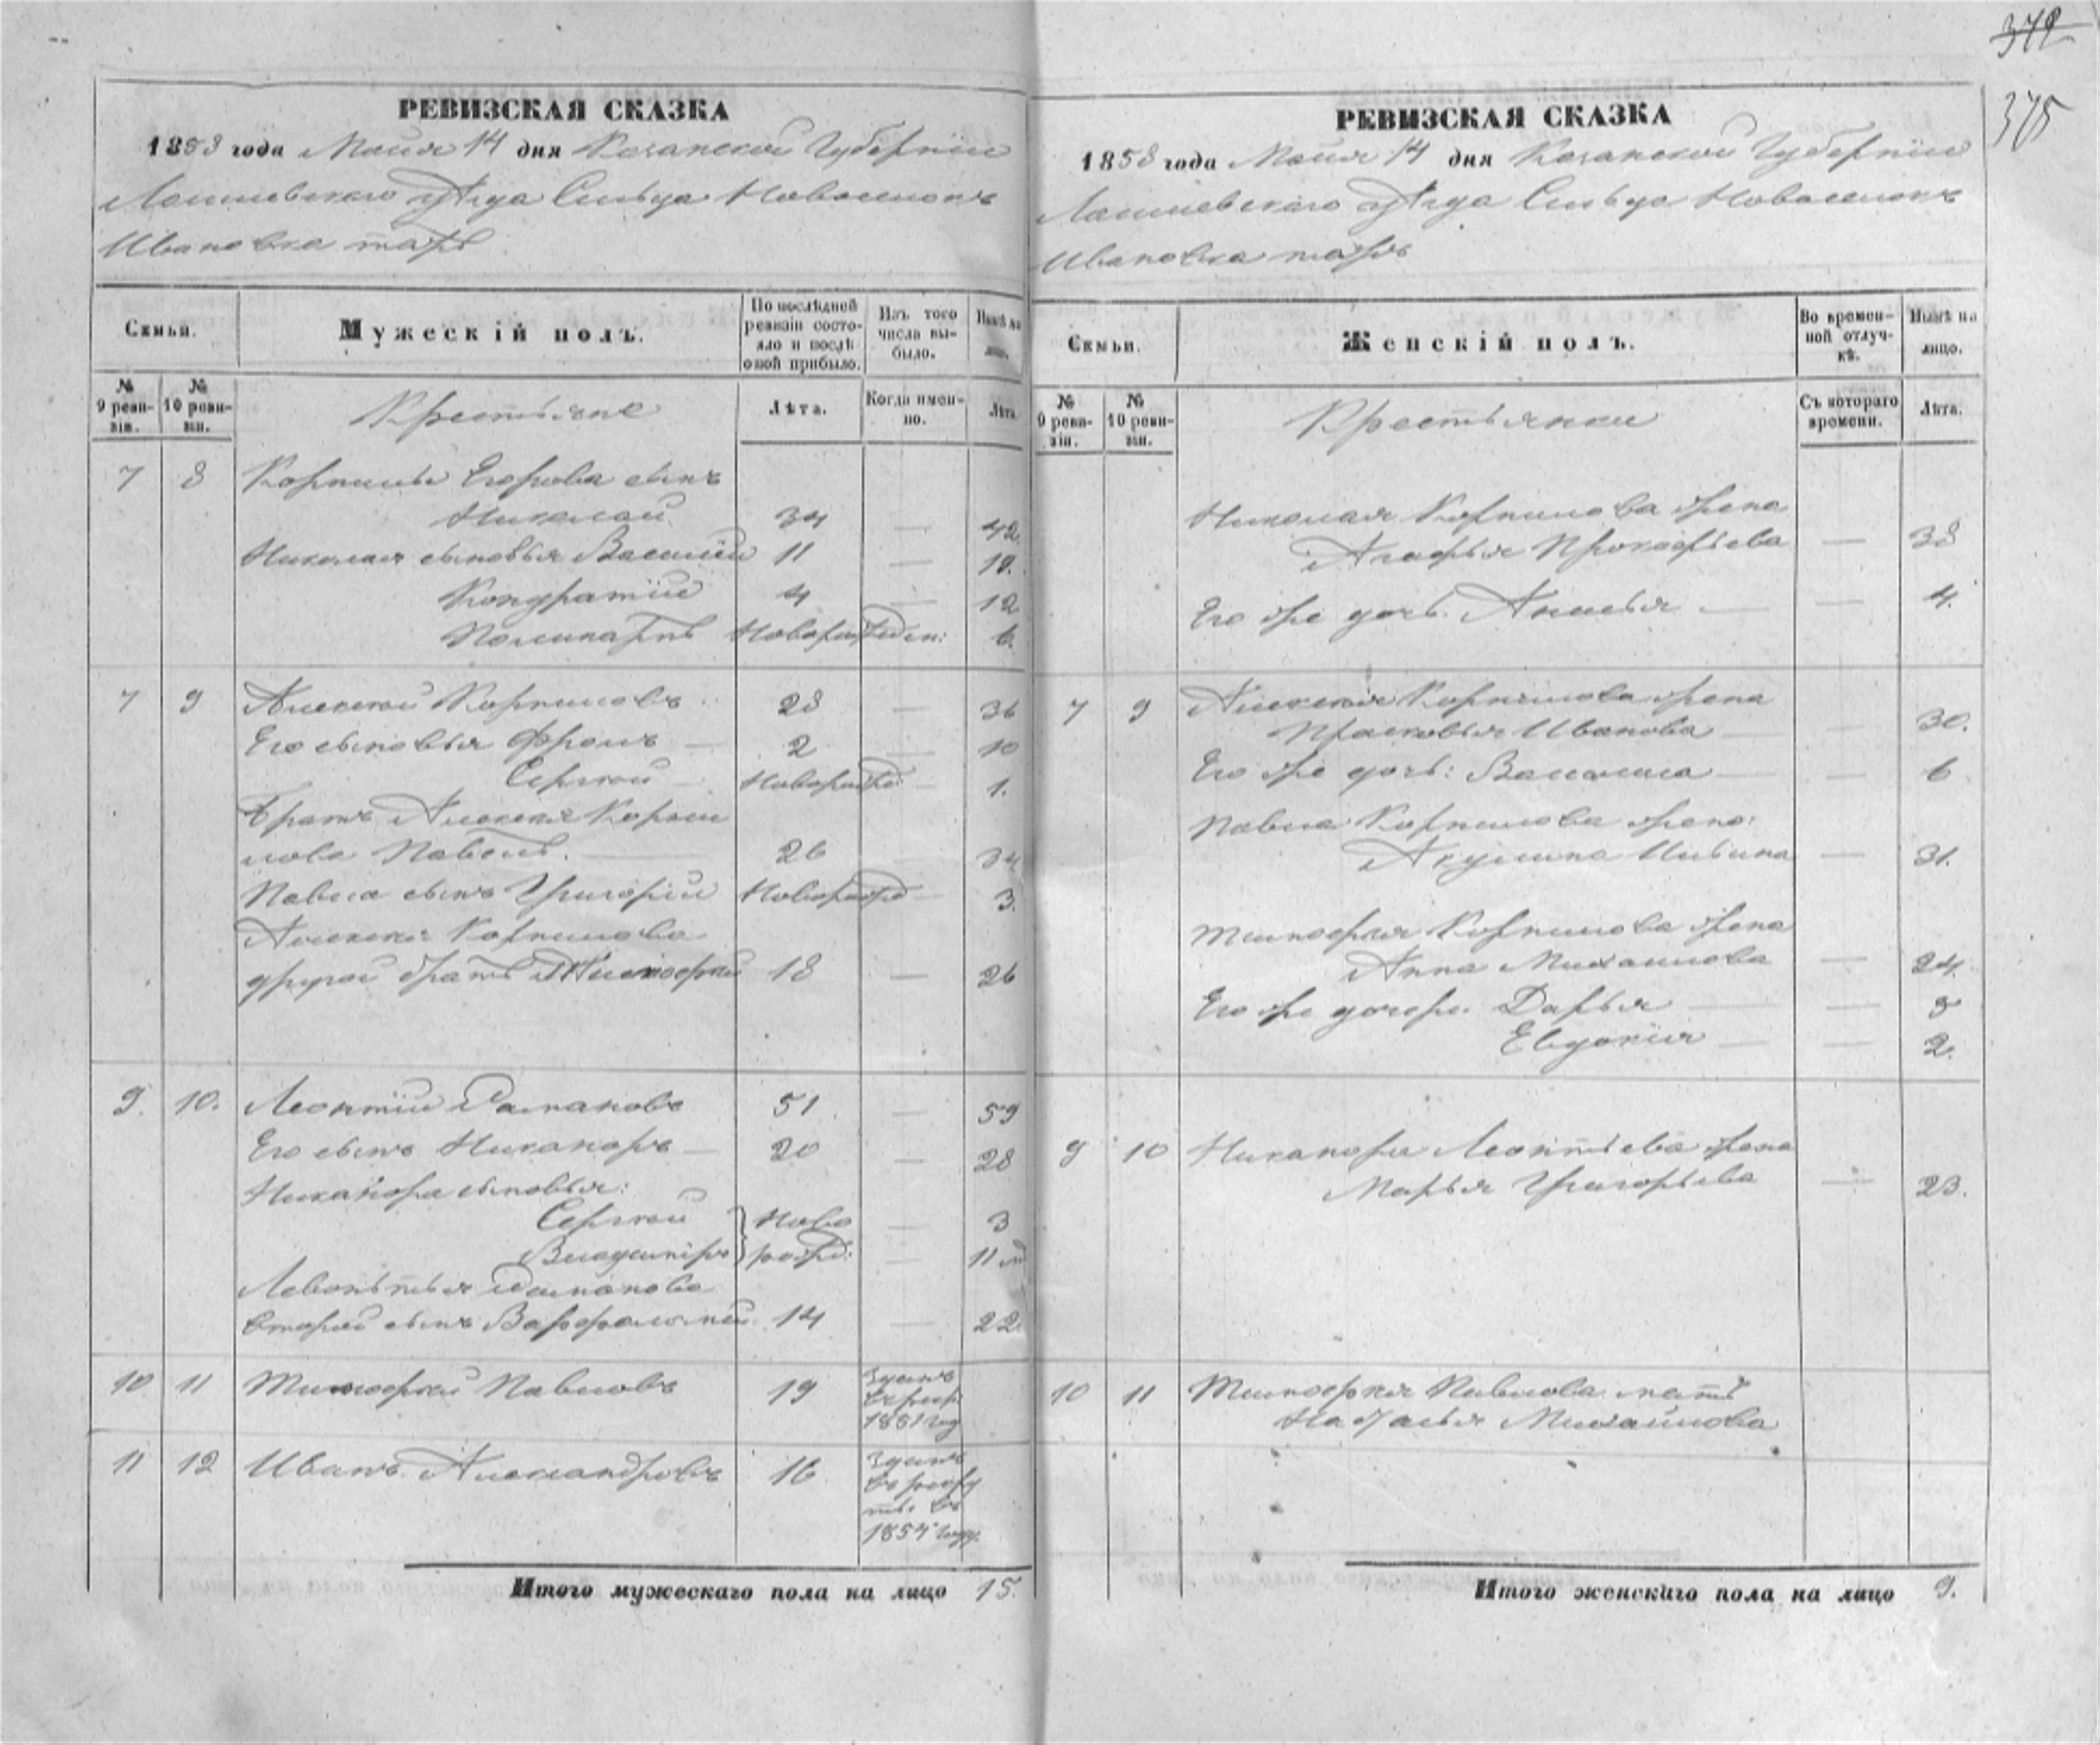 372
375
РЕВИЗСКАЯ СКАЗКА
1858 года Маия 14 дня Казанской Губернiи
Лаишевскаго уѣзда Сельца Новоселокъ
Ивановка тожъ
Семьи.
Мужескiй полъ.
По послѣдней ревизiи состояло и послѣ оной прибыло.
Изъ того числа выбыло.
Нынѣ на лицо.
№ 9 ревизiи.
№ 10 ревизiи.
Крестьяне
Лѣта.
Когда именно.
Лѣта.
7 8 Корнилы Егорова сынъ
Николай 34 — 42.
Николая сыновья Василiй 11 — 19.
Кондратiй 4 — 12
Поликарпъ Новорожден: 6.
7 9 Алексей Корниловъ 28 — 36
Его сыновья Фролъ — 2 — 10
Сергей — Новорожд: — 1.
Братъ Алексея Корни
лова Павелъ. — 26 — 34
Павла сынъ Григорiй Новорожд — 3.
Алексея Корнилова
другой братъ Тимофей 18 — 26
9. 10. Леонтiй Романовъ 51 — 59
Его сынъ Никаноръ — 20 — 28
Никанора сыновья:
Сергей } Ново — 3
Владимiръ } рожд: — 11 мѣ
Левонтья Романова
второй сынъ Варфоломей 14 — 22
10 11 Тимофей Павловъ 19
Зданъ
въ рекр:
1851 год
11 12 Иванъ Александровъ 16
Зданъ
въ рекру
ты въ
1854 году.
Итого мужескаго пола на лицо 15.
РЕВИЗСКАЯ СКАЗКА
1858 года Маия 14 дня Казанской Губернiи
Лаишевскаго уѣзда Сельца Новоселокъ
Ивановка тожъ
Семьи.
Женскiй полъ.
Во временной отлучкѣ.
Нынѣ на лицо.
№ 9 ревизiи.
№ 10 ревизiи.
Крестьянки
Съ котораго времени.
Лѣта.
Николая Корнилова жена
Агафья Прокофьева — 38
Его же дочь. Аксинья — — 4.
7 9 Алексея Корнилова жена
Прасковья Иванова — — 30.
Его же дочь: Василиса — — 6
Павла Корнилова жена:
Акулина Ильина — 31.
Тимофея Корнилова жена
Анна Михаилова — 24.
Его же дочери. Дарья — — 5
Евдокiя — — 2.
9 10 Никанора Леонтьева жена
Марья Григорьева — 23.
10 11 Тимофея Павлова мать
Наталья Михайлова
Итого женскаго пола на лицо 9.